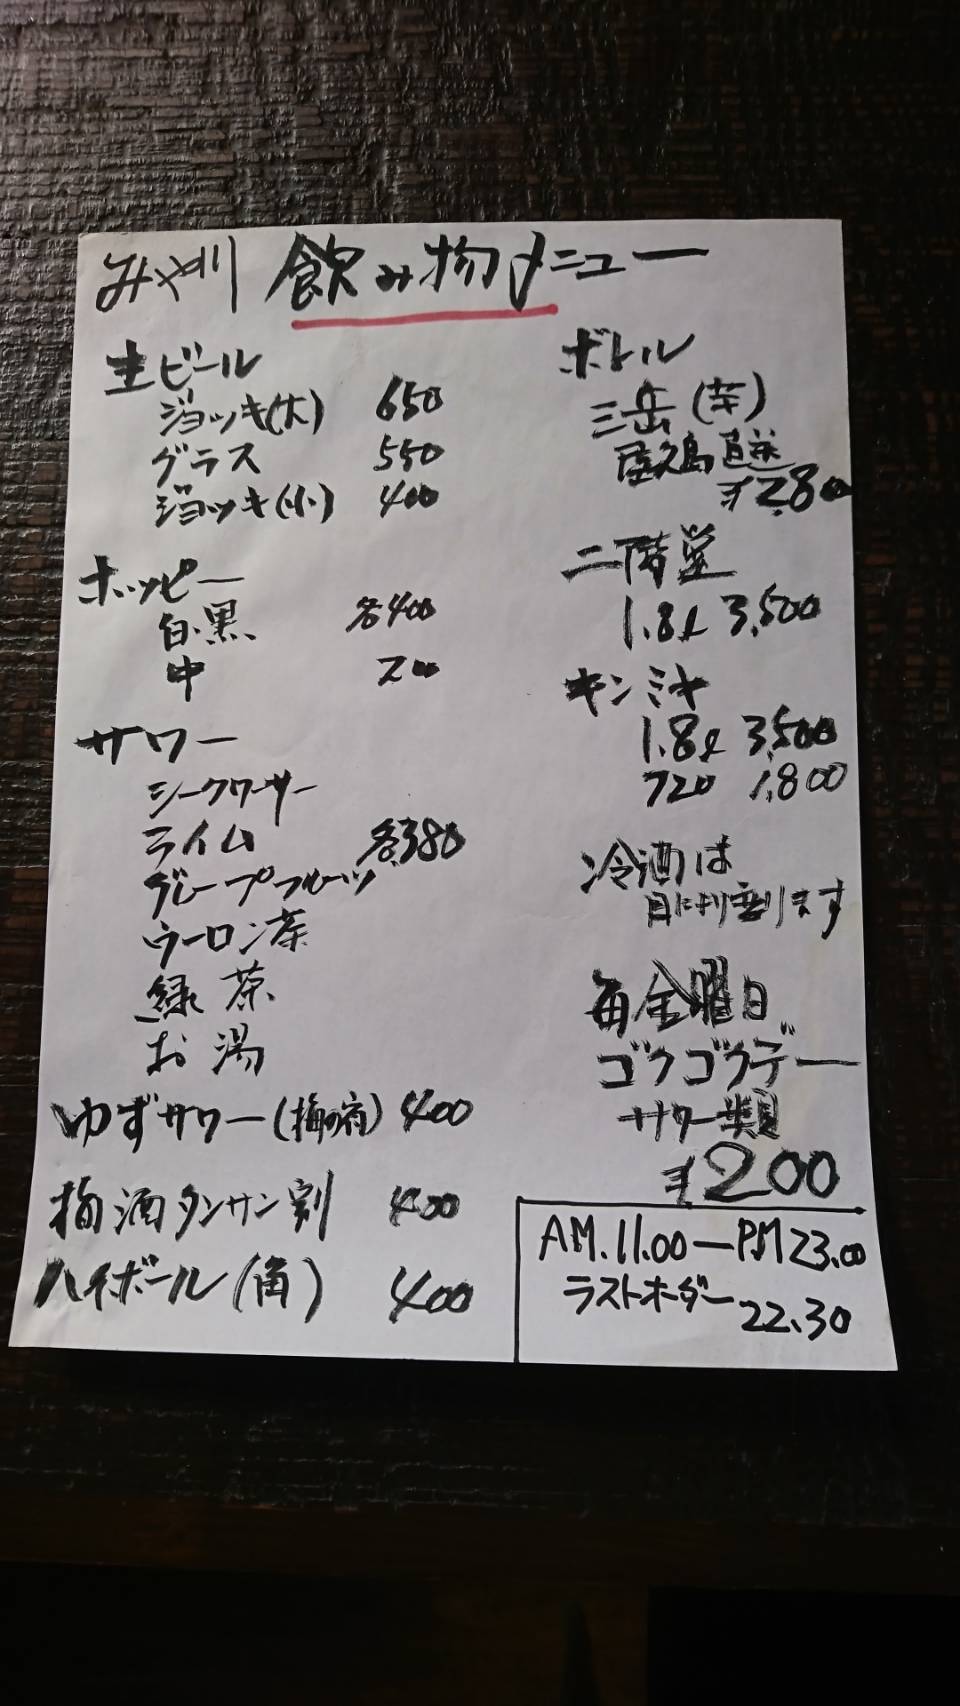 みや川 飲み物メニュー
生ビール
ジョッキ(大) 650
グラス 550
ジョッキ(小) 400
ホッピー
白・黒 各400
中 200
サワー
シークワーサー
ライム 各380
グレープフルーツ
ウーロン茶
緑茶
お湯
ゆずサワー(梅の宿) 400
梅酒タンサン割 400
ハイボール(角) 400
ボトル
三岳(芋)
屋久島直送
¥2.800
二階堂
1.8ℓ 3,500
キンミヤ
1.8ℓ 3,500
720 1,800
冷酒は
日により変ります
毎金曜日
ゴクゴクデー
サワー類
¥200
AM.11.00ーPM23.00
ラストオーダー22.30